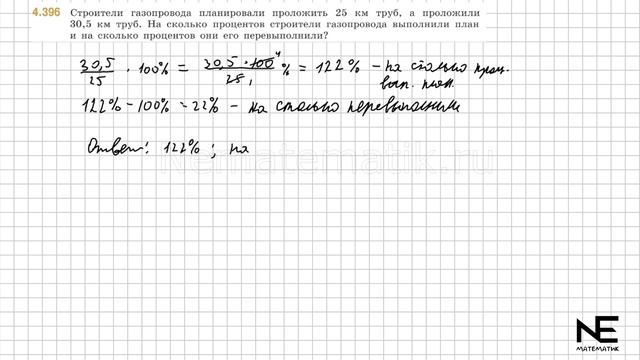 4.396 Строители газопровода планировали проложить 25 км труб, а проложили
30,5 км труб. На сколько процентов строители газопровода выполнили план
и на сколько процентов они его перевыполнили?
30,5/25 · 100% = 30,5 · 100 4/25 1 % = 122% – на столько проц.
вып. план.
122% – 100% = 22% – на столько перевыполнили
Ответ: 122% ; на
Nematematik.ru
NE
МАТЕМАТИК